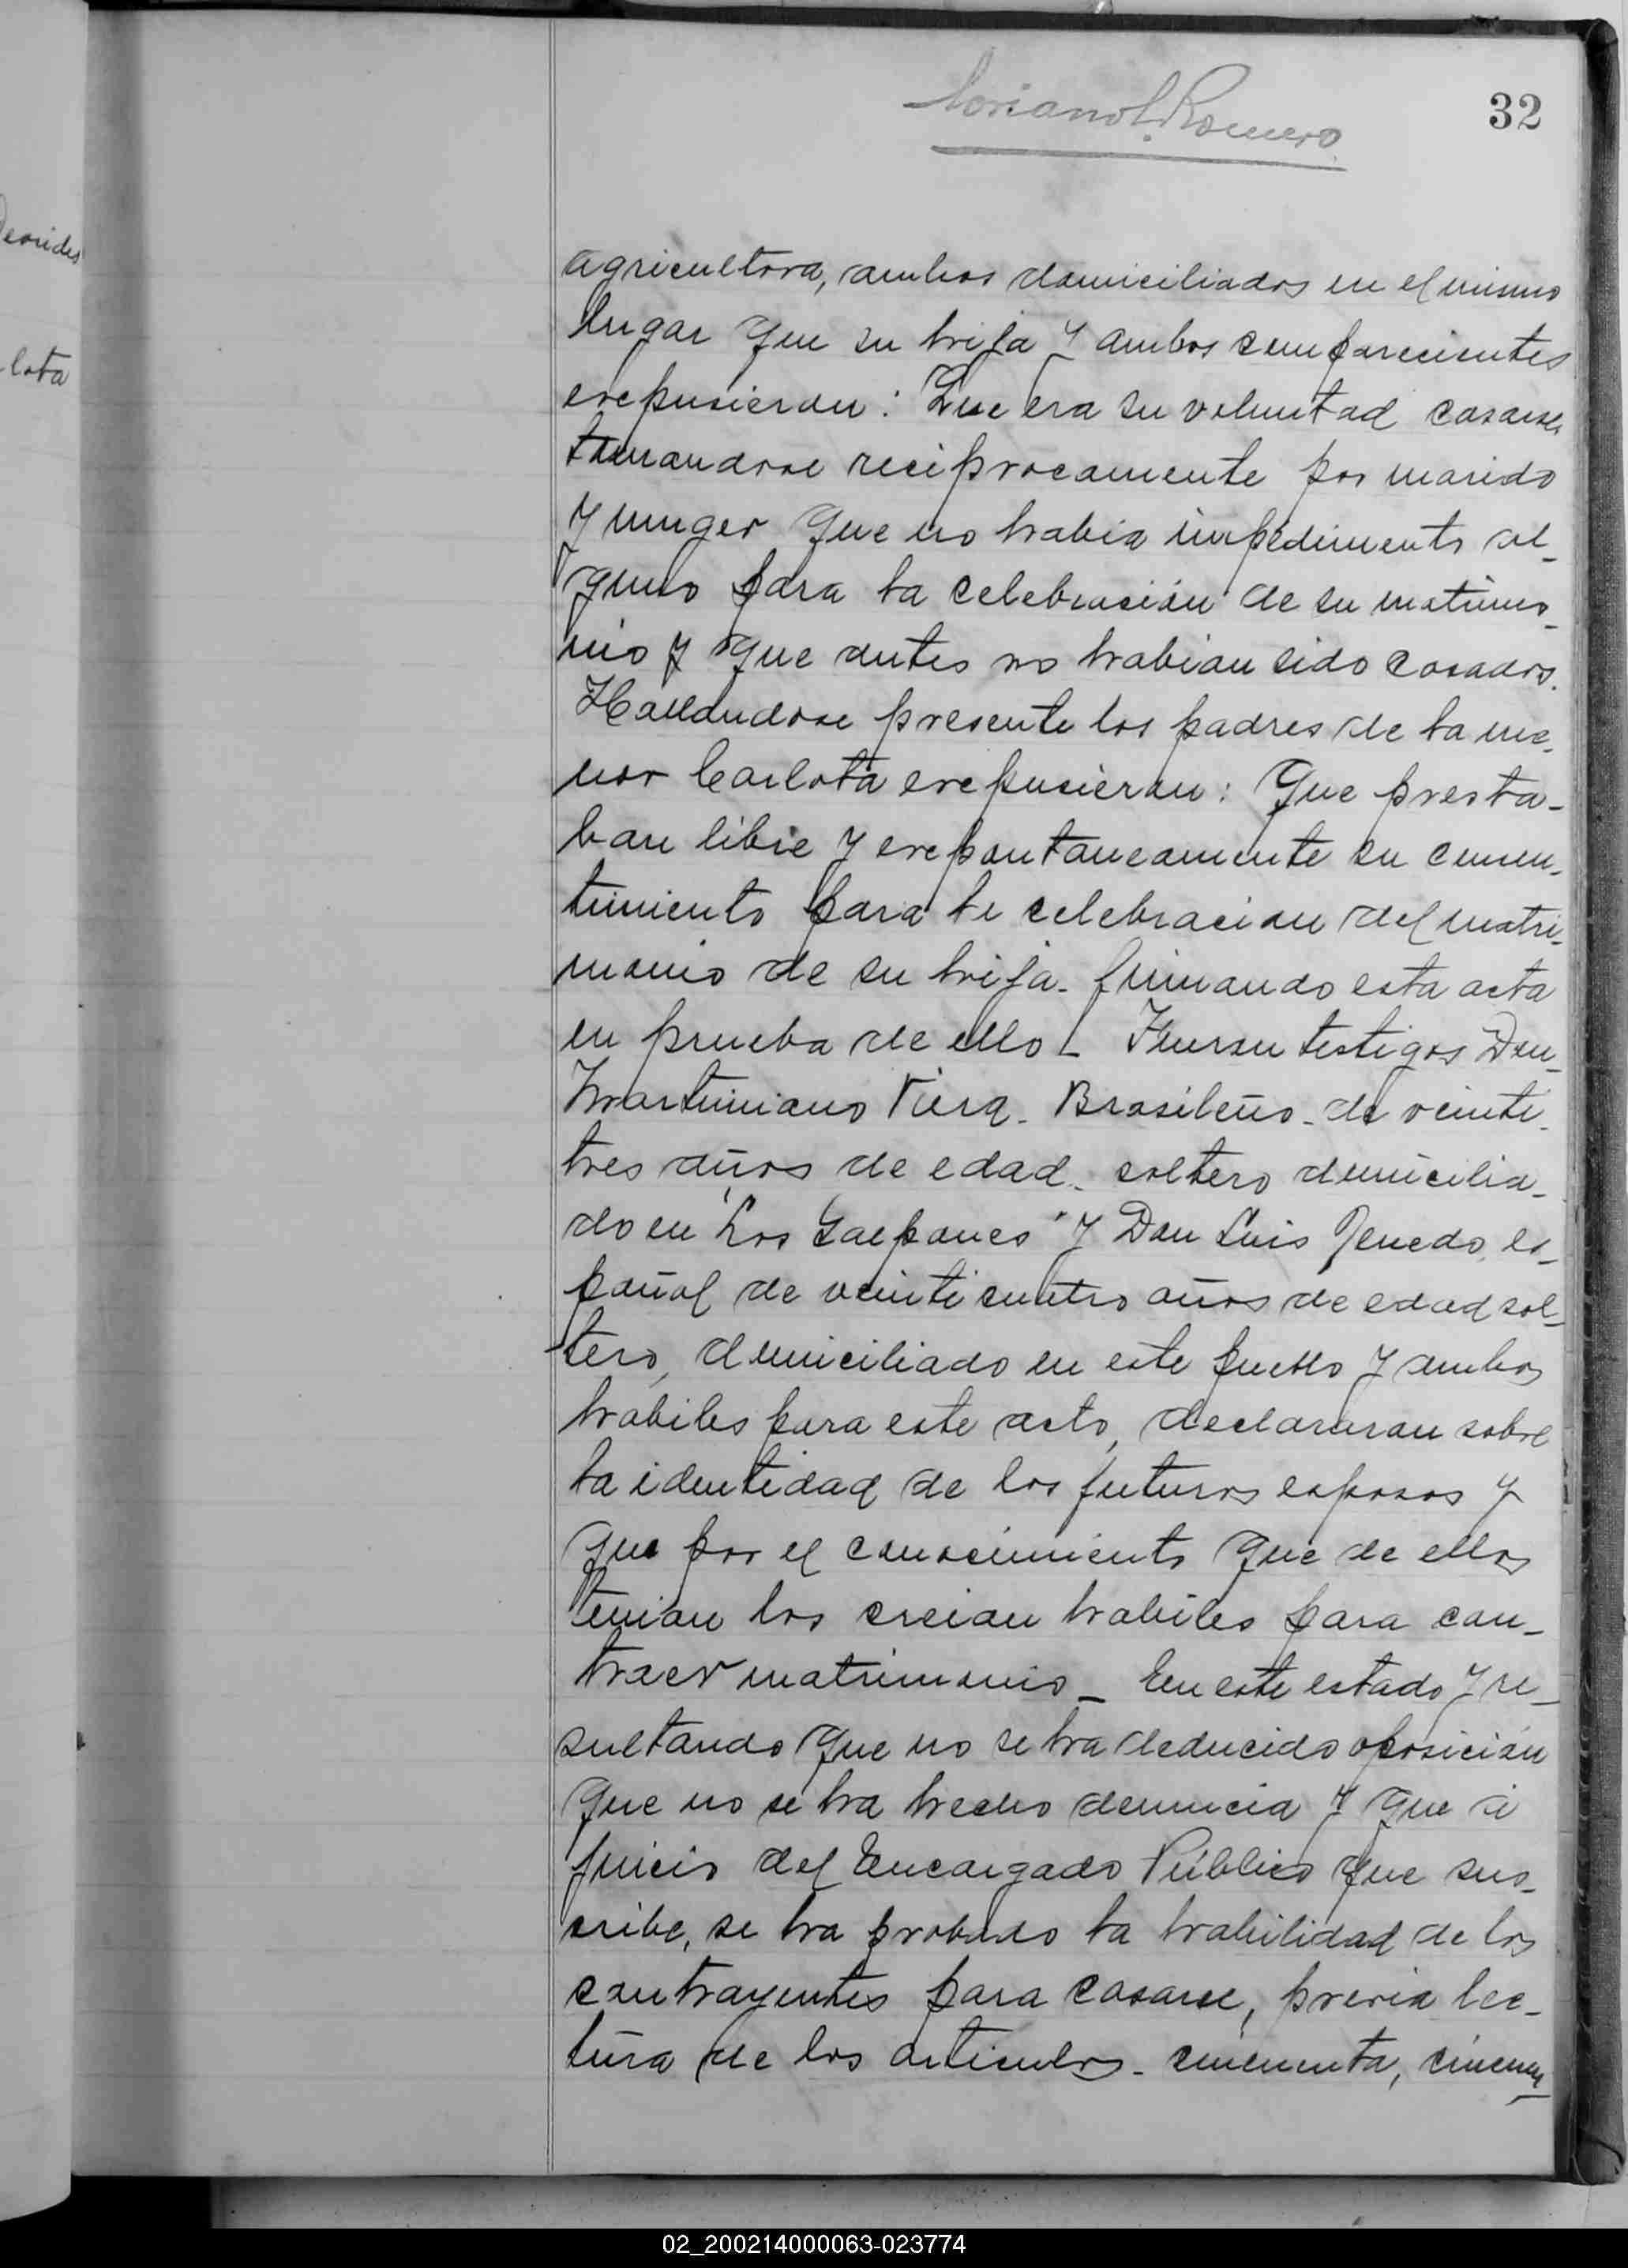 32
Romero
eonides
lota
agricultora, ambos domiciliados en el mismo
lugar que su hija y ambos comparecientes
expusieron: Que era su voluntad casarse
tomandose reciprocamente por marido
y muger que no habia impedimento al-
guno para la celebración de su matrimo-
nio y que antes no habian sido casados.
Hallandose presente los padres de la me-
nor Carlota expusieron: Que presta-
ban libre y expontaneamente su consen-
timiento para la celebracion del matri-
monio de su hija - firmando esta acta
en prueba de ello - Fueron testigos Don
Martiniano Viera - Brasileño - de veinti-
tres años de edad - soltero domicilia-
do en "Los Galpones" y Don Luis Penedo, es-
pañol de veinticuatro años de edad sol-
tero, domiciliado en este pueblo y ambos
habiles para este acto, declararon sobre
la identidad de los futuros esposos y
que por el conocimiento que de ellos
tenian los creian habiles para con-
traer matrimonio - En este estado y re-
sultando que no se ha deducido oposición
que no se ha hecho denuncia y que a
juicio del Encargado Público que sus-
cribe, se ha probado la habilidad de los
contrayentes para casarse, previa lec-
tura de los articulos - cincuenta, cincuen
02_200214000063-023774